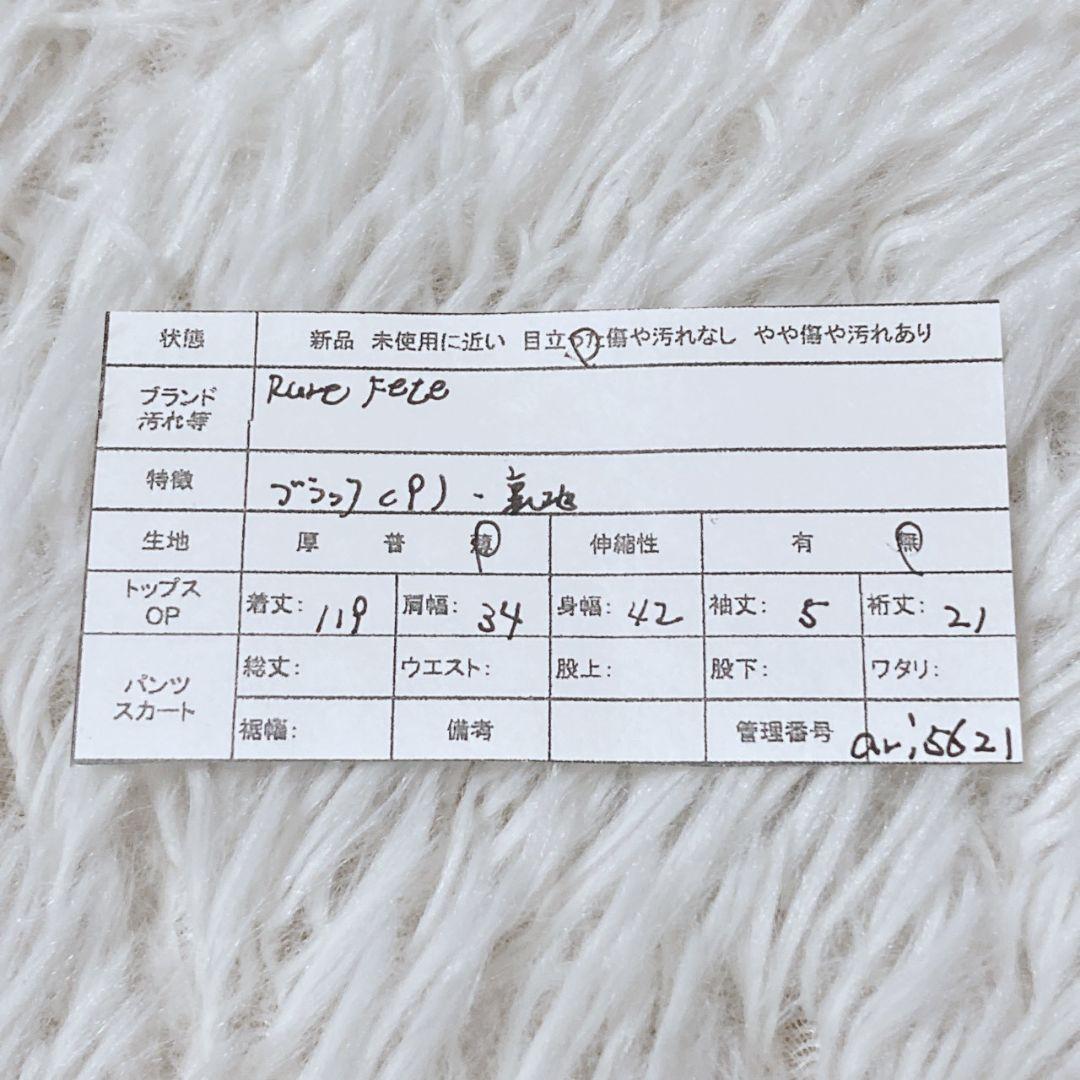 状態 新品 未使用に近い 目立った傷や汚れなし やや傷や汚れあり
ブランド Rure Fete
汚れ等
特徴 ブラック(P)、裏地
生地 厚 普 薄 伸縮性 有 無
トップス OP 着丈: 119 肩幅: 34 身幅: 42 袖丈: 5 裄丈: 21
パンツ スカート 総丈: ウエスト: 股上: 股下: ワタリ:
裾幅: 備考 管理番号 ari5621